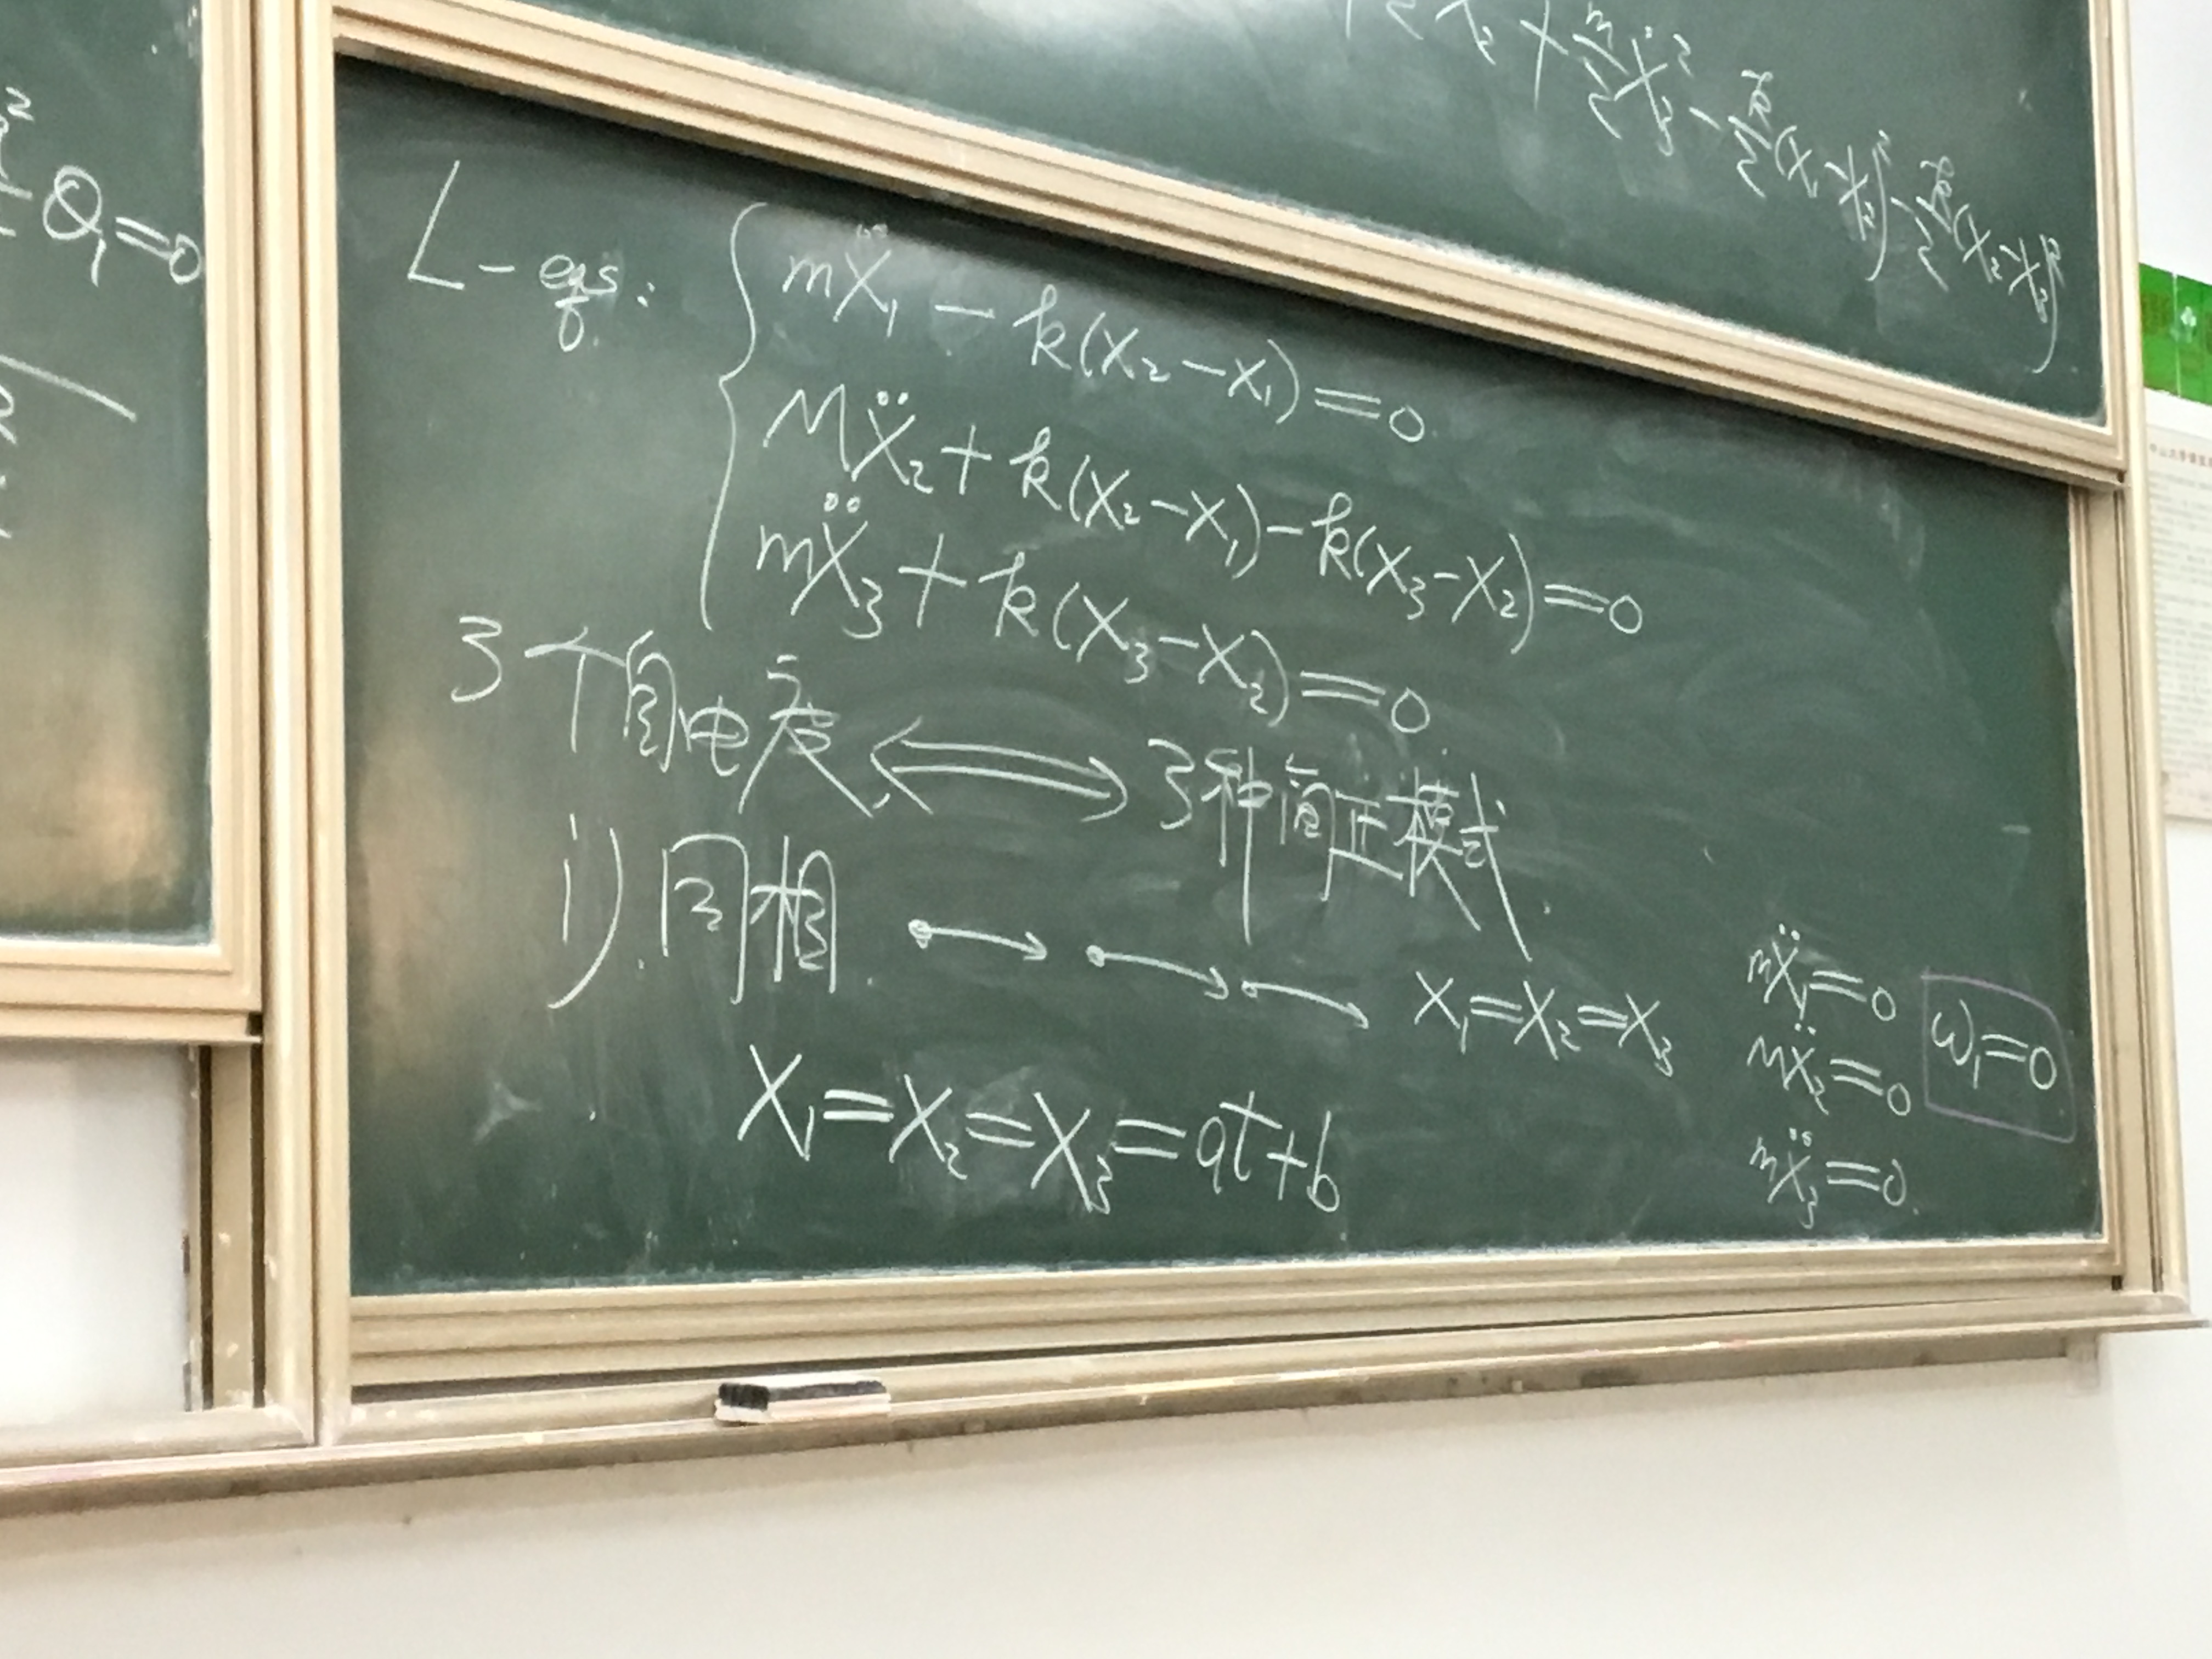 Q₁=0
+ m/2 Ẋ₃² - k/2 (X₁-X₂)² - k/2 (X₂-X₃)²
L-eqs:
mẌ₁ - k(X₂-X₁)=0
MẌ₂ + k(X₂-X₁) - k(X₃-X₂)=0
mẌ₃ + k(X₃-X₂)=0
3个自由度 ⟺ 3种简正模式.
i). 同相. X₁=X₂=X₃
mẌ₁=0
MẌ₂=0
mẌ₃=0.
ω₁=0
X₁=X₂=X₃=at+b